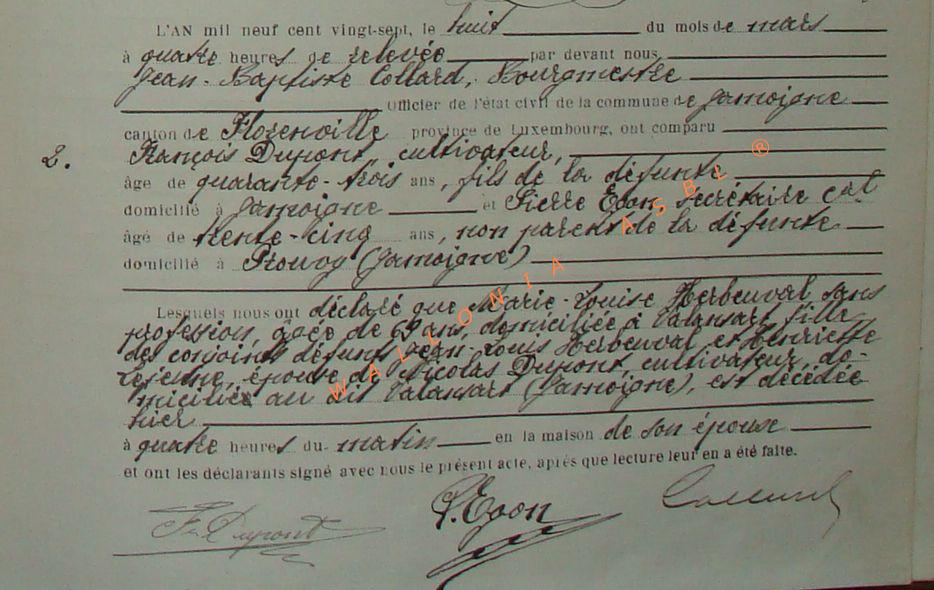 L'AN mil neuf cent vingt-sept, le huit du mois de mars
à quatre heures de relevée par devant nous
Jean-Baptiste Collard, Bourgmestre
Officier de l'état civil de la commune de Jamoigne
canton de Florenville province de Luxembourg, ont comparu
2. François Dupont, cultivateur,
âge de quarante-trois ans, fils de la défunte
domicilié à Jamoigne et Pierre Egon secrétaire cal
âgé de trente-cinq ans, non parent de la défunte
domicilié à Prouvy (Jamoigne)
Lesquels nous ont déclaré que Marie-Louise Herbeuval sans
profession, âgée de 69 ans, domiciliée à Valansart, fille
des conjoints défunts Jean-Louis Herbeuval et Henriette
Lejeune, épouse de Nicolas Dupont, cultivateur, do-
micilié au dit Valansart (Jamoigne), est décédée
hier
à quatre heures du matin en la maison de son épouse
et ont les déclarants signé avec nous le présent acte, après que lecture leur en a été faite.
F. Dupont P. Egon Collard
WALLONIA ASBL ®